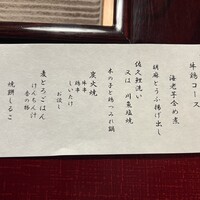 牛鶏コース
海老芋含め煮
胡麻とうふ揚げ出し
佐久鯉洗い
又は 川魚塩焼
きのこと鶏つみれ鍋
炭火焼
牛串
鶏串
しいたけ
お話し
麦とろごはん
けんちん汁
香の物
焼餅しるこ